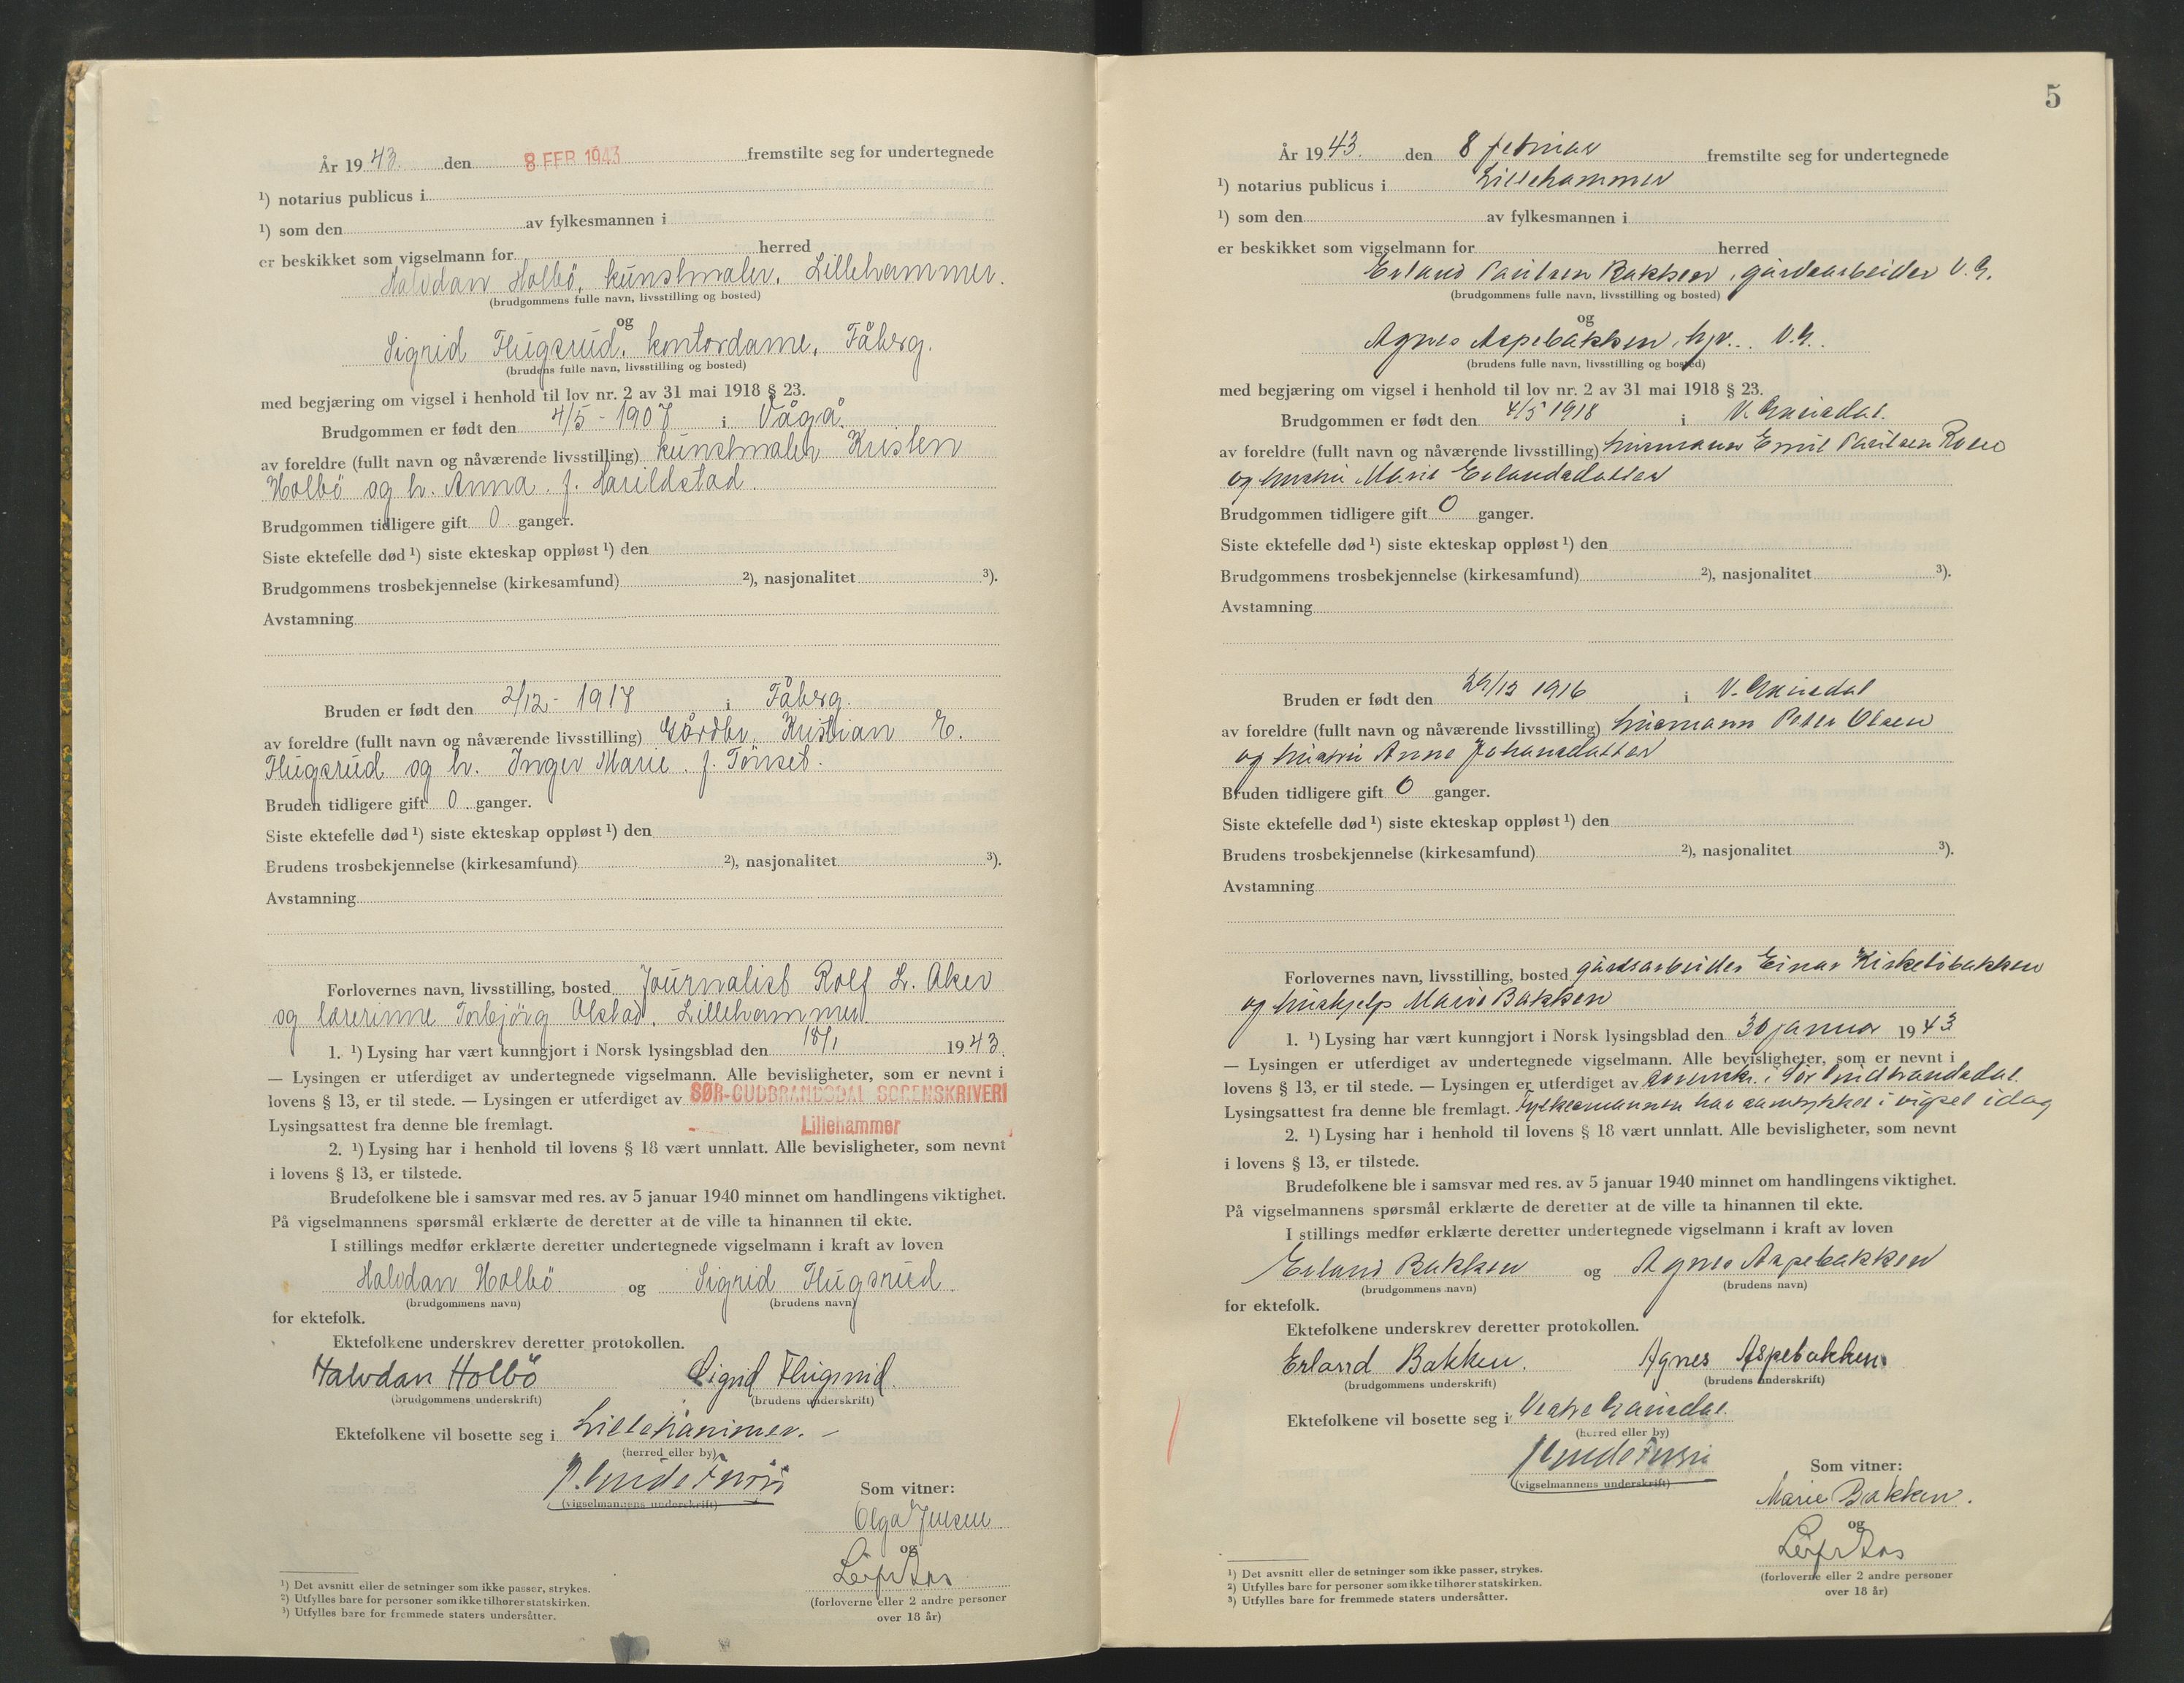 År 1943. den 8 FEB 1943 fremstilte seg for undertegnede
¹) notarius publicus i
¹) som den av fylkesmannen i
er beskikket som vigselmann for herred
Halvdan Holbö, kunstmaler, Lillehammer.
(brudgommens fulle navn, livsstilling og bosted)
og
Sigrid Flugsrud, kontordame, Fåberg.
(brudens fulle navn, livsstilling og bosted)
med begjæring om vigsel i henhold til lov nr. 2 av 31 mai 1918 § 23.
Brudgommen er født den 4/5 - 1907 i Vågå.
av foreldre (fullt navn og nåværende livsstilling) kunstmaler Kristen
Holbö og h. Anna f. Harildstad.
Brudgommen tidligere gift 0 ganger.
Siste ektefelle død ¹) siste ekteskap oppløst ¹) den
Brudgommens trosbekjennelse (kirkesamfund) ²), nasjonalitet ³).
Avstamning
Bruden er født den 2/12 - 1917 i Fåberg.
av foreldre (fullt navn og nåværende livsstilling) Gårdbr. Kristian E.
Flugsrud og h. Inger Marie f. Tönset.
Bruden tidligere gift 0 ganger.
Siste ektefelle død ¹) siste ekteskap oppløst ¹) den
Brudens trosbekjennelse (kirkesamfund) ²), nasjonalitet ³).
Avstamning
Forlovernes navn, livsstilling, bosted Journalist Rolf L. Aker
og lærerinne Torbjörg Alstad, Lillehammer
1. ¹) Lysing har vært kunngjort i Norsk lysingsblad den 18/1 1943.
— Lysingen er utferdiget av undertegnede vigselmann. Alle bevisligheter, som er nevnt i
lovens § 13, er til stede. — Lysingen er utferdiget av SØR-GUDBRANDSDAL SORENSKRIVERI
Lysingsattest fra denne ble fremlagt. Lillehammer
2. ¹) Lysing har i henhold til lovens § 18 vært unnlatt. Alle bevisligheter, som nevnt
i lovens § 13, er tilstede.
Brudefolkene ble i samsvar med res. av 5 januar 1940 minnet om handlingens viktighet.
På vigselmannens spørsmål erklærte de deretter at de ville ta hinannen til ekte.
I stillings medfør erklærte deretter undertegnede vigselmann i kraft av loven
Halvdan Holbö. og Sigrid Flugsrud.
(brudgommens navn) (brudens navn)
for ektefolk.
Ektefolkene underskrev deretter protokollen.
Halvdan Holbö Sigrid Flugsrud.
(brudgommens underskrift) (brudens underskrift)
Ektefolkene vil bosette seg i Lillehammer.
(herred eller by)
(vigselmannens underskrift)
Som vitner:
Olga Jensen
og
(forloverne eller 2 andre personer
over 18 år)
¹) Det avsnitt eller de setninger som ikke passer, strykes.
²) Utfylles bare for personer som ikke tilhører statskirken.
³) Utfylles bare for fremmede staters undersåtter.
5
År 1943. den 8 februar fremstilte seg for undertegnede
¹) notarius publicus i Lillehammer
¹) som den av fylkesmannen i
er beskikket som vigselmann for herred
Erland Paulsen Bakken, gårdsarbeider V. G.
(brudgommens fulle navn, livsstilling og bosted)
og
Agnes Aspebakken, hp. V. G.
(brudens fulle navn, livsstilling og bosted)
med begjæring om vigsel i henhold til lov nr. 2 av 31 mai 1918 § 23.
Brudgommen er født den 4/5 1918 i V. Gausdal.
av foreldre (fullt navn og nåværende livsstilling) husmann Emil Paulsen
og hustru Marie Erlandsdatter
Brudgommen tidligere gift 0 ganger.
Siste ektefelle død ¹) siste ekteskap oppløst ¹) den
Brudgommens trosbekjennelse (kirkesamfund) ²), nasjonalitet ³).
Avstamning
Bruden er født den 29/12 1916 i V. Gausdal
av foreldre (fullt navn og nåværende livsstilling) husmann Peter Olsen
og hustru Anne Johansdatter
Bruden tidligere gift 0 ganger.
Siste ektefelle død ¹) siste ekteskap oppløst ¹) den
Brudens trosbekjennelse (kirkesamfund) ²), nasjonalitet ³).
Avstamning
Forlovernes navn, livsstilling, bosted gårdsarbeider Einar
og hushjelp Marie Bakken
1. ¹) Lysing har vært kunngjort i Norsk lysingsblad den 30 januar 1943
— Lysingen er utferdiget av undertegnede vigselmann. Alle bevisligheter, som er nevnt i
lovens § 13, er til stede. — Lysingen er utferdiget av sorenskr. i Sør Gudbrandsdal.
Lysingsattest fra denne ble fremlagt. Fylkesmannen har samtykket i vigsel idag
2. ¹) Lysing har i henhold til lovens § 18 vært unnlatt. Alle bevisligheter, som nevnt
i lovens § 13, er tilstede.
Brudefolkene ble i samsvar med res. av 5 januar 1940 minnet om handlingens viktighet.
På vigselmannens spørsmål erklærte de deretter at de ville ta hinannen til ekte.
I stillings medfør erklærte deretter undertegnede vigselmann i kraft av loven
Erland Bakken og Agnes Aspebakken
(brudgommens navn) (brudens navn)
for ektefolk.
Ektefolkene underskrev deretter protokollen.
Erland Bakken. Agnes Aspebakken.
(brudgommens underskrift) (brudens underskrift)
Ektefolkene vil bosette seg i Vestre Gausdal.
(herred eller by)
(vigselmannens underskrift)
Som vitner:
Marie Bakken.
og
(forloverne eller 2 andre personer
over 18 år)
¹) Det avsnitt eller de setninger som ikke passer, strykes.
²) Utfylles bare for personer som ikke tilhører statskirken.
³) Utfylles bare for fremmede staters undersåtter.